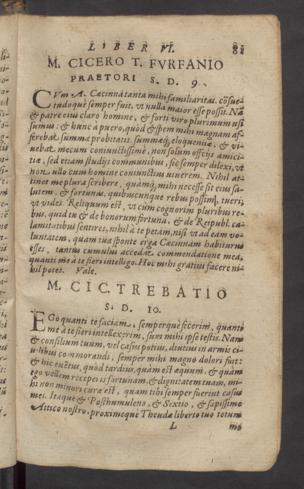 LIBER VI. 81
M. CICERO T. FVRFANIO
PRAETORI S. D. 9.
CVm A. Cæcina tanta mihi familiaritas, cōsue
tudoque semper fuit, vt nulla maior esse possit. Nā
& patre eius claro homine, & forti viro plurimum vsi
sumus: & hunc à puero, quòd & spem mihi magnam af-
ferebat summæ probitatis, summæq́; eloquentiæ, & vi-
uebat mecum coniunctissimè, non solùm officijs amici-
tiæ, sed etiam studijs communibus, sic semper dilexi, vt
non vllo cum homine coniunctius viuerem. Nihil at-
tinet me plura scribere, quàm mihi necesse sit eius sa-
lutem, & fortunas, quibuscunque rebus possim, tueri,
vt vides. Reliquum est, vt cùm cognorim pluribus re-
bus, quid tu & de bonorum fortuna, & de Reipubl. ca-
lamitatibus sentires, nihil à te petam, nisi vt ad eam vo-
luntatem, quam tua sponte erga Cæcinam habiturus
esses, tantus cumulus accedat commendatione mea,
quanti me à te fieri intellego. Hoc mihi gratius facere ni-
hil potes. Vale.
M. CIC. TREBATIO
S. D. 10.
EGo quanti te faciam, semperquè fecerim, quanti
me à te fieri intellexerim, sum mihi ipse testis. Nam
& consilium tuum, vel casus potius, diutius in armis ci-
uilibus commorandi, semper mihi magno dolori fuit:
& hic euētus, quòd tardius, quàm est æquum, & quàm
ego vellem recuperas fortunam, & dignitatem tuam, mi-
hi non minori curæ est, quàm tibi semper fuerint casus
mei. Itaque & Posthumuleno, & Sextio, & sæpissimè
Attico nostro, proximeque Theudæ liberto tuo totum
L me